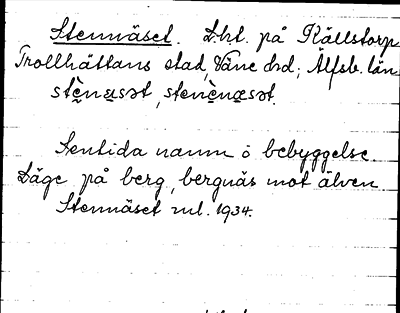 Stennäset. Lht. på Källstorp
Trollhättans stad, Väne hd; Älfsb. län
Sentida namn å bebyggelse
Läge på berg, bergnäs mot älven
Stennäset ml. 1934.